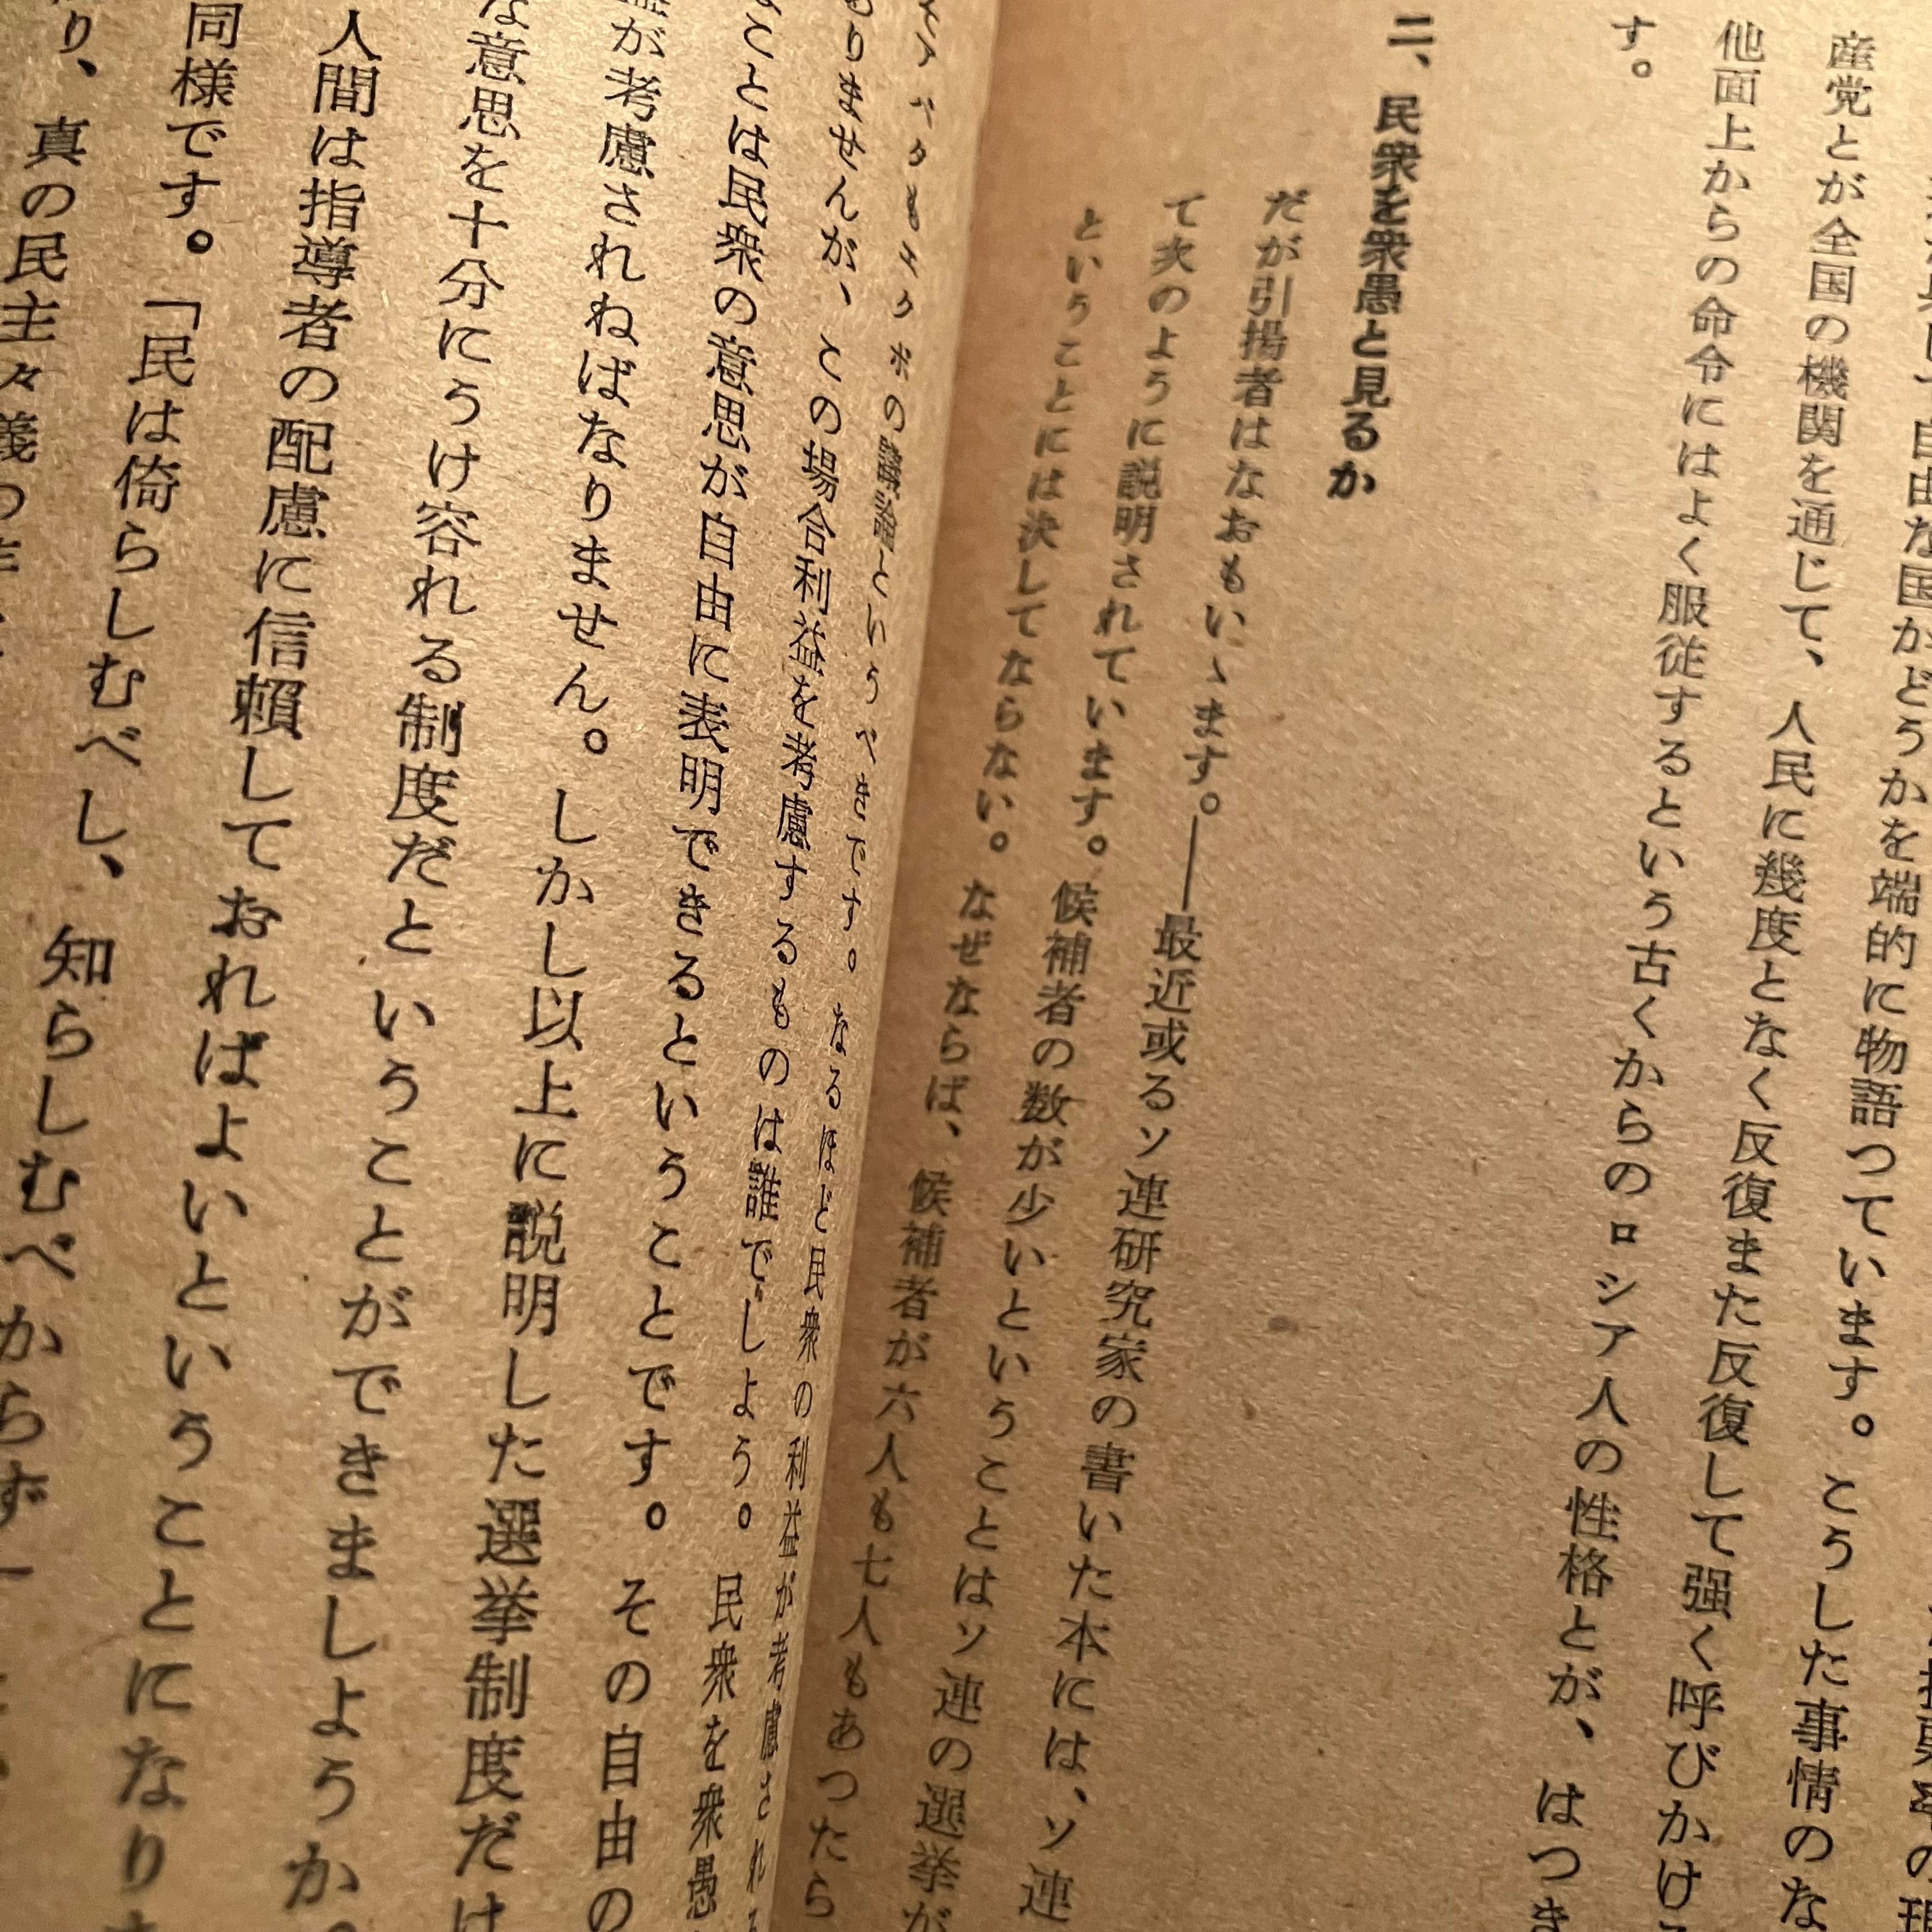 自由な国かどうかを端的に物語つています。こうした事情のな
産党とが全国の機関を通じて、人民に幾度となく反復また反復して强く呼びかけ
他面上からの命令にはよく服従するという古くからのロシア人の性格とが、はつき
す。
二、民衆を衆愚と見るか
だが引揚者はなおもいゝます。――最近或るソ連研究家の書いた本には、ソ連
て次のように説明されています。候補者の数が少いということはソ連の選挙が
ということには決してならない。なぜならば、候補者が六人も七人もあつたら
の議論というべきです。なるほど民衆の利益が考慮される
りませんが、この場合利益を考慮するものは誰でしよう。民衆を衆愚
ことは民衆の意思が自由に表明できるということです。その自由の
益が考慮されねばなりません。しかし以上に説明した選挙制度だけ
な意思を十分にうけ容れる制度だということができましようか。
人間は指導者の配慮に信頼しておればよいということになりま
同様です。「民は倚らしむべし、知らしむべからず
り、真の民主々義